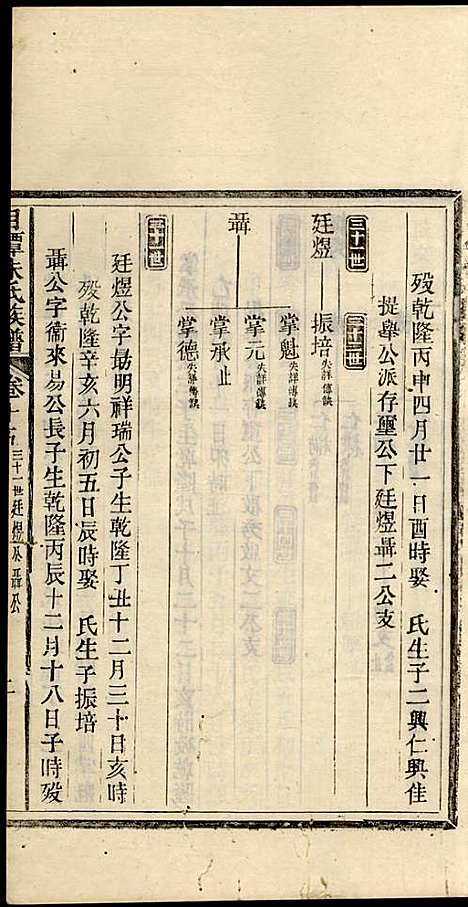 歿乾隆丙申四月廿一日酉時娶 氏生子二興仁興佳
提舉公派存璽公下廷煜聶二公支
三十一世 三十二世
廷煜 振培失詳傳缺
掌魁失詳傳缺
聶 掌元失詳傳缺
掌承止
掌德失詳傳缺
三十一世
廷煜公字勗明祥瑞公子生乾隆丁丑十二月三十日亥時
歿乾隆辛亥六月初五日辰時娶 氏生子振培
聶公字衛來易公長子生乾隆丙辰十二月十八日子時歿
月潭朱氏族譜 卷十 三十一世廷煜公聶公